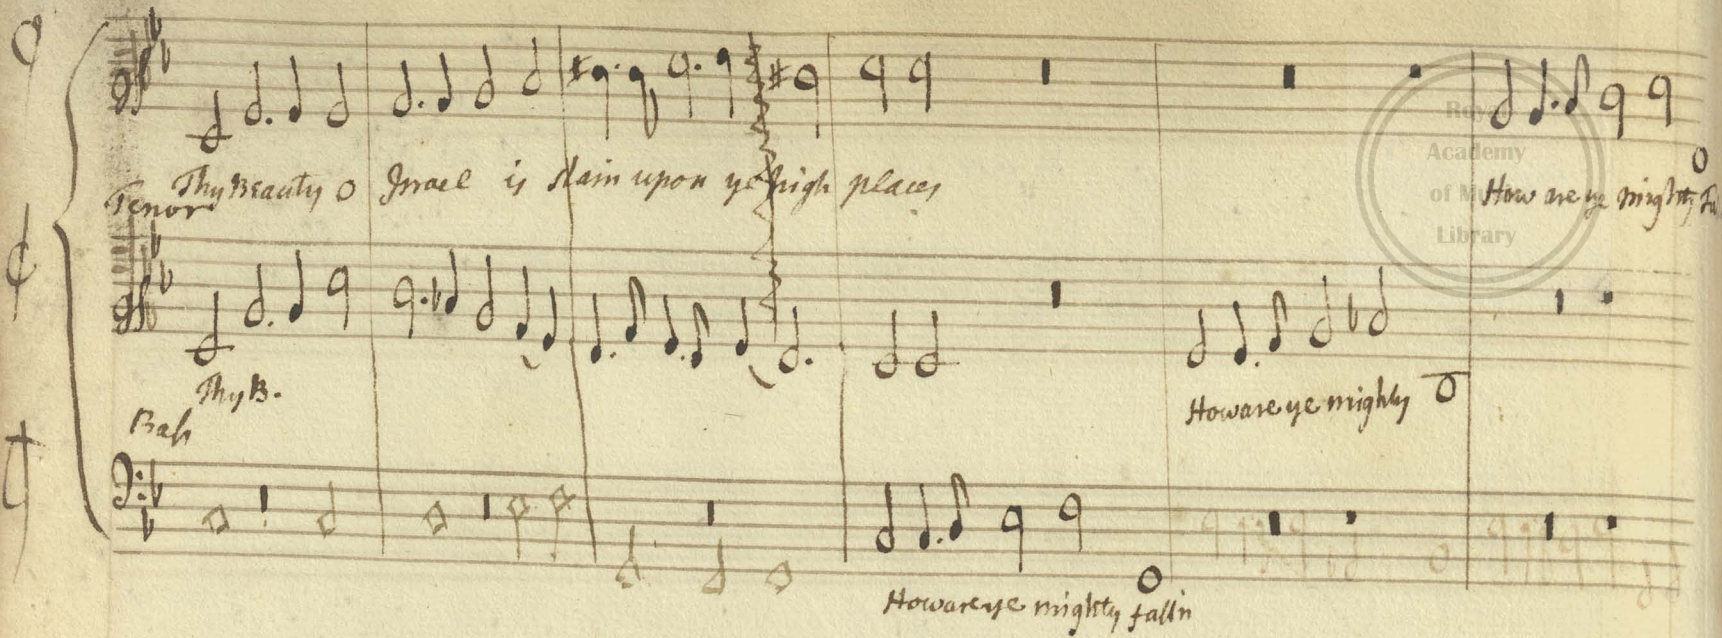 Thy Beauty o Israel is slain upon ye high places
How are ye mighty
Tenor
Thy B.
How are ye mighty
Bass
How are ye mighty falln
Royal
Academy
of Music
Library